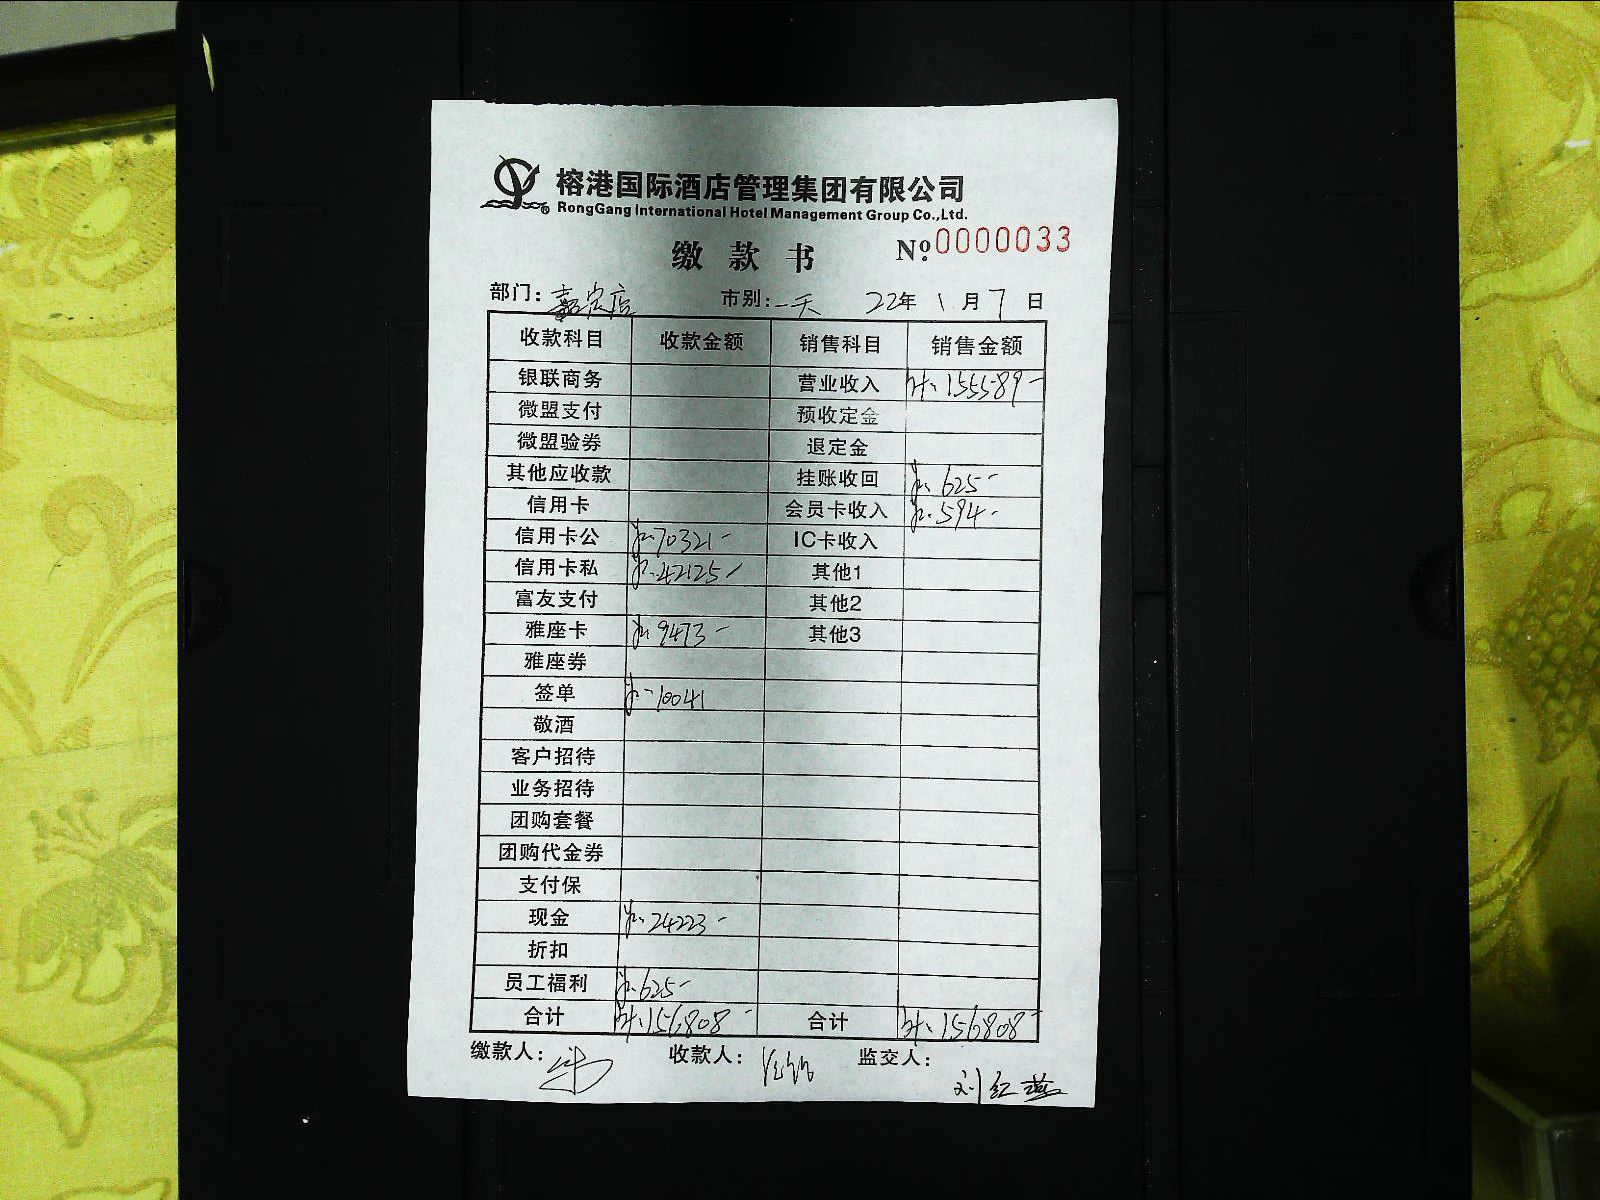 榕港国际酒店管理集团有限公司
RongGang International Hotel Management Group Co.,Ltd.
缴款书 №:0000033
部门:嘉定店 市别:一天 22年1月7日
收款科目 收款金额 销售科目 销售金额
银联商务 营业收入 155589-
微盟支付 预收定金
微盟验券 退定金
其他应收款 挂账收回 625-
信用卡 会员卡收入 594-
信用卡公 70321- IC卡收入
信用卡私 42125- 其他1
富友支付 其他2
雅座卡 9473- 其他3
雅座券
签单 10041
敬酒
客户招待
业务招待
团购套餐
团购代金券
支付保
现金 24223-
折扣
员工福利 625-
合计 156808- 合计 156808-
缴款人: 收款人: 监交人:
刘红燕